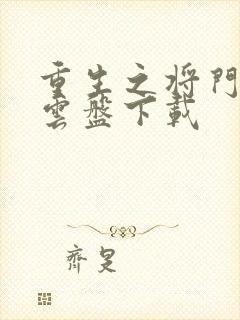 重生之将門
雲盤下載
齊旻